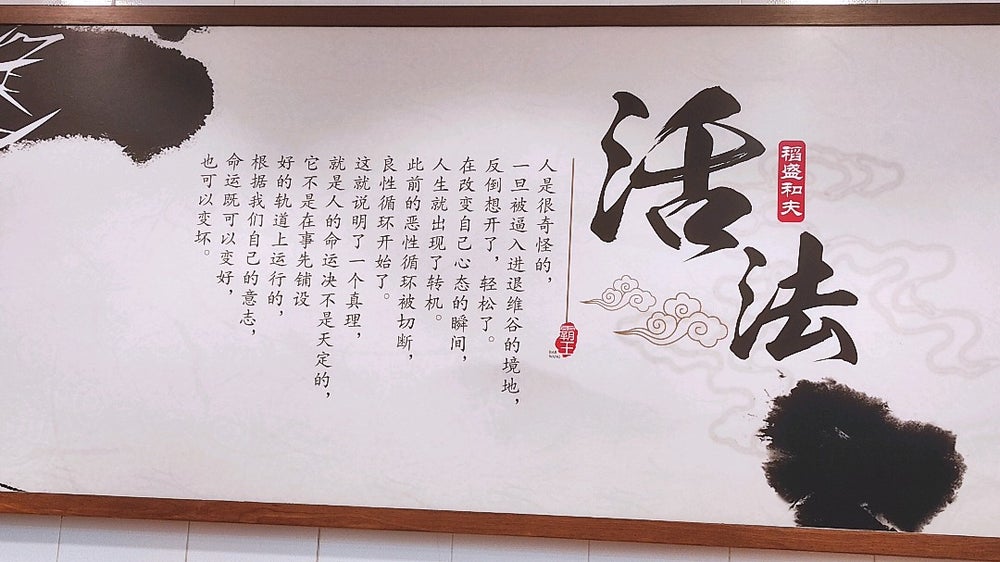 活法
稻盛和夫
霸王
人是很奇怪的，
一旦被逼入进退维谷的境地，
反倒想开了，轻松了。
在改变自己心态的瞬间，
人生就出现了转机。
此前的恶性循环被切断，
良性循环开始了。
这就说明了一个真理，
就是人的命运决不是天定的，
它不是在事先铺设
好的轨道上运行的，
根据我们自己的意志，
命运既可以变好，
也可以变坏。